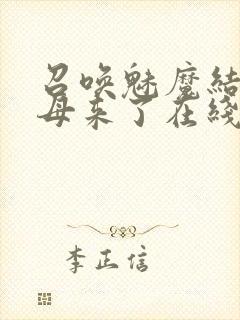 召唤魅魔结
母来了在綫
李正信